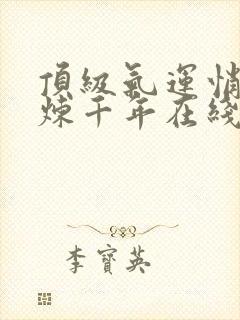 頂級氣運悄
炼千年在綫
李寶英